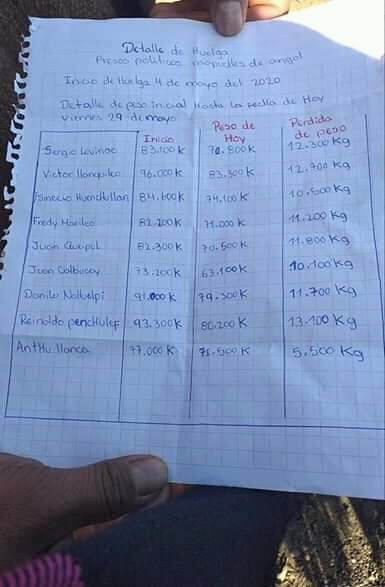 Detalle de Huelga
Presos políticos mapuches de angol
Inicio de Huelga 4 de mayo del 2020
Detalle de peso inicial Hasta la fecha de Hoy
viernes 29 de mayo
Inicio Peso de Hoy Perdida de peso
Sergio Levinao 83.100K 70.800K 12.300Kg
Victor llanquileo 96.000K 83.300K 12.700Kg
84.600K 74.100K 10.500Kg
Fredy Marileo 82.200K 71.000K 11.200Kg
Juan Queipul 82.300K 70.500K 11.800Kg
Juan Calbucoy 73.200K 63.100K 10.100Kg
Danilo Nahuelpi 91.000K 79.300K 11.700Kg
Reinaldo penchulef 93.300K 80.200K 13.100Kg
Anthu llanca 77.000K 71.500K 5.500Kg